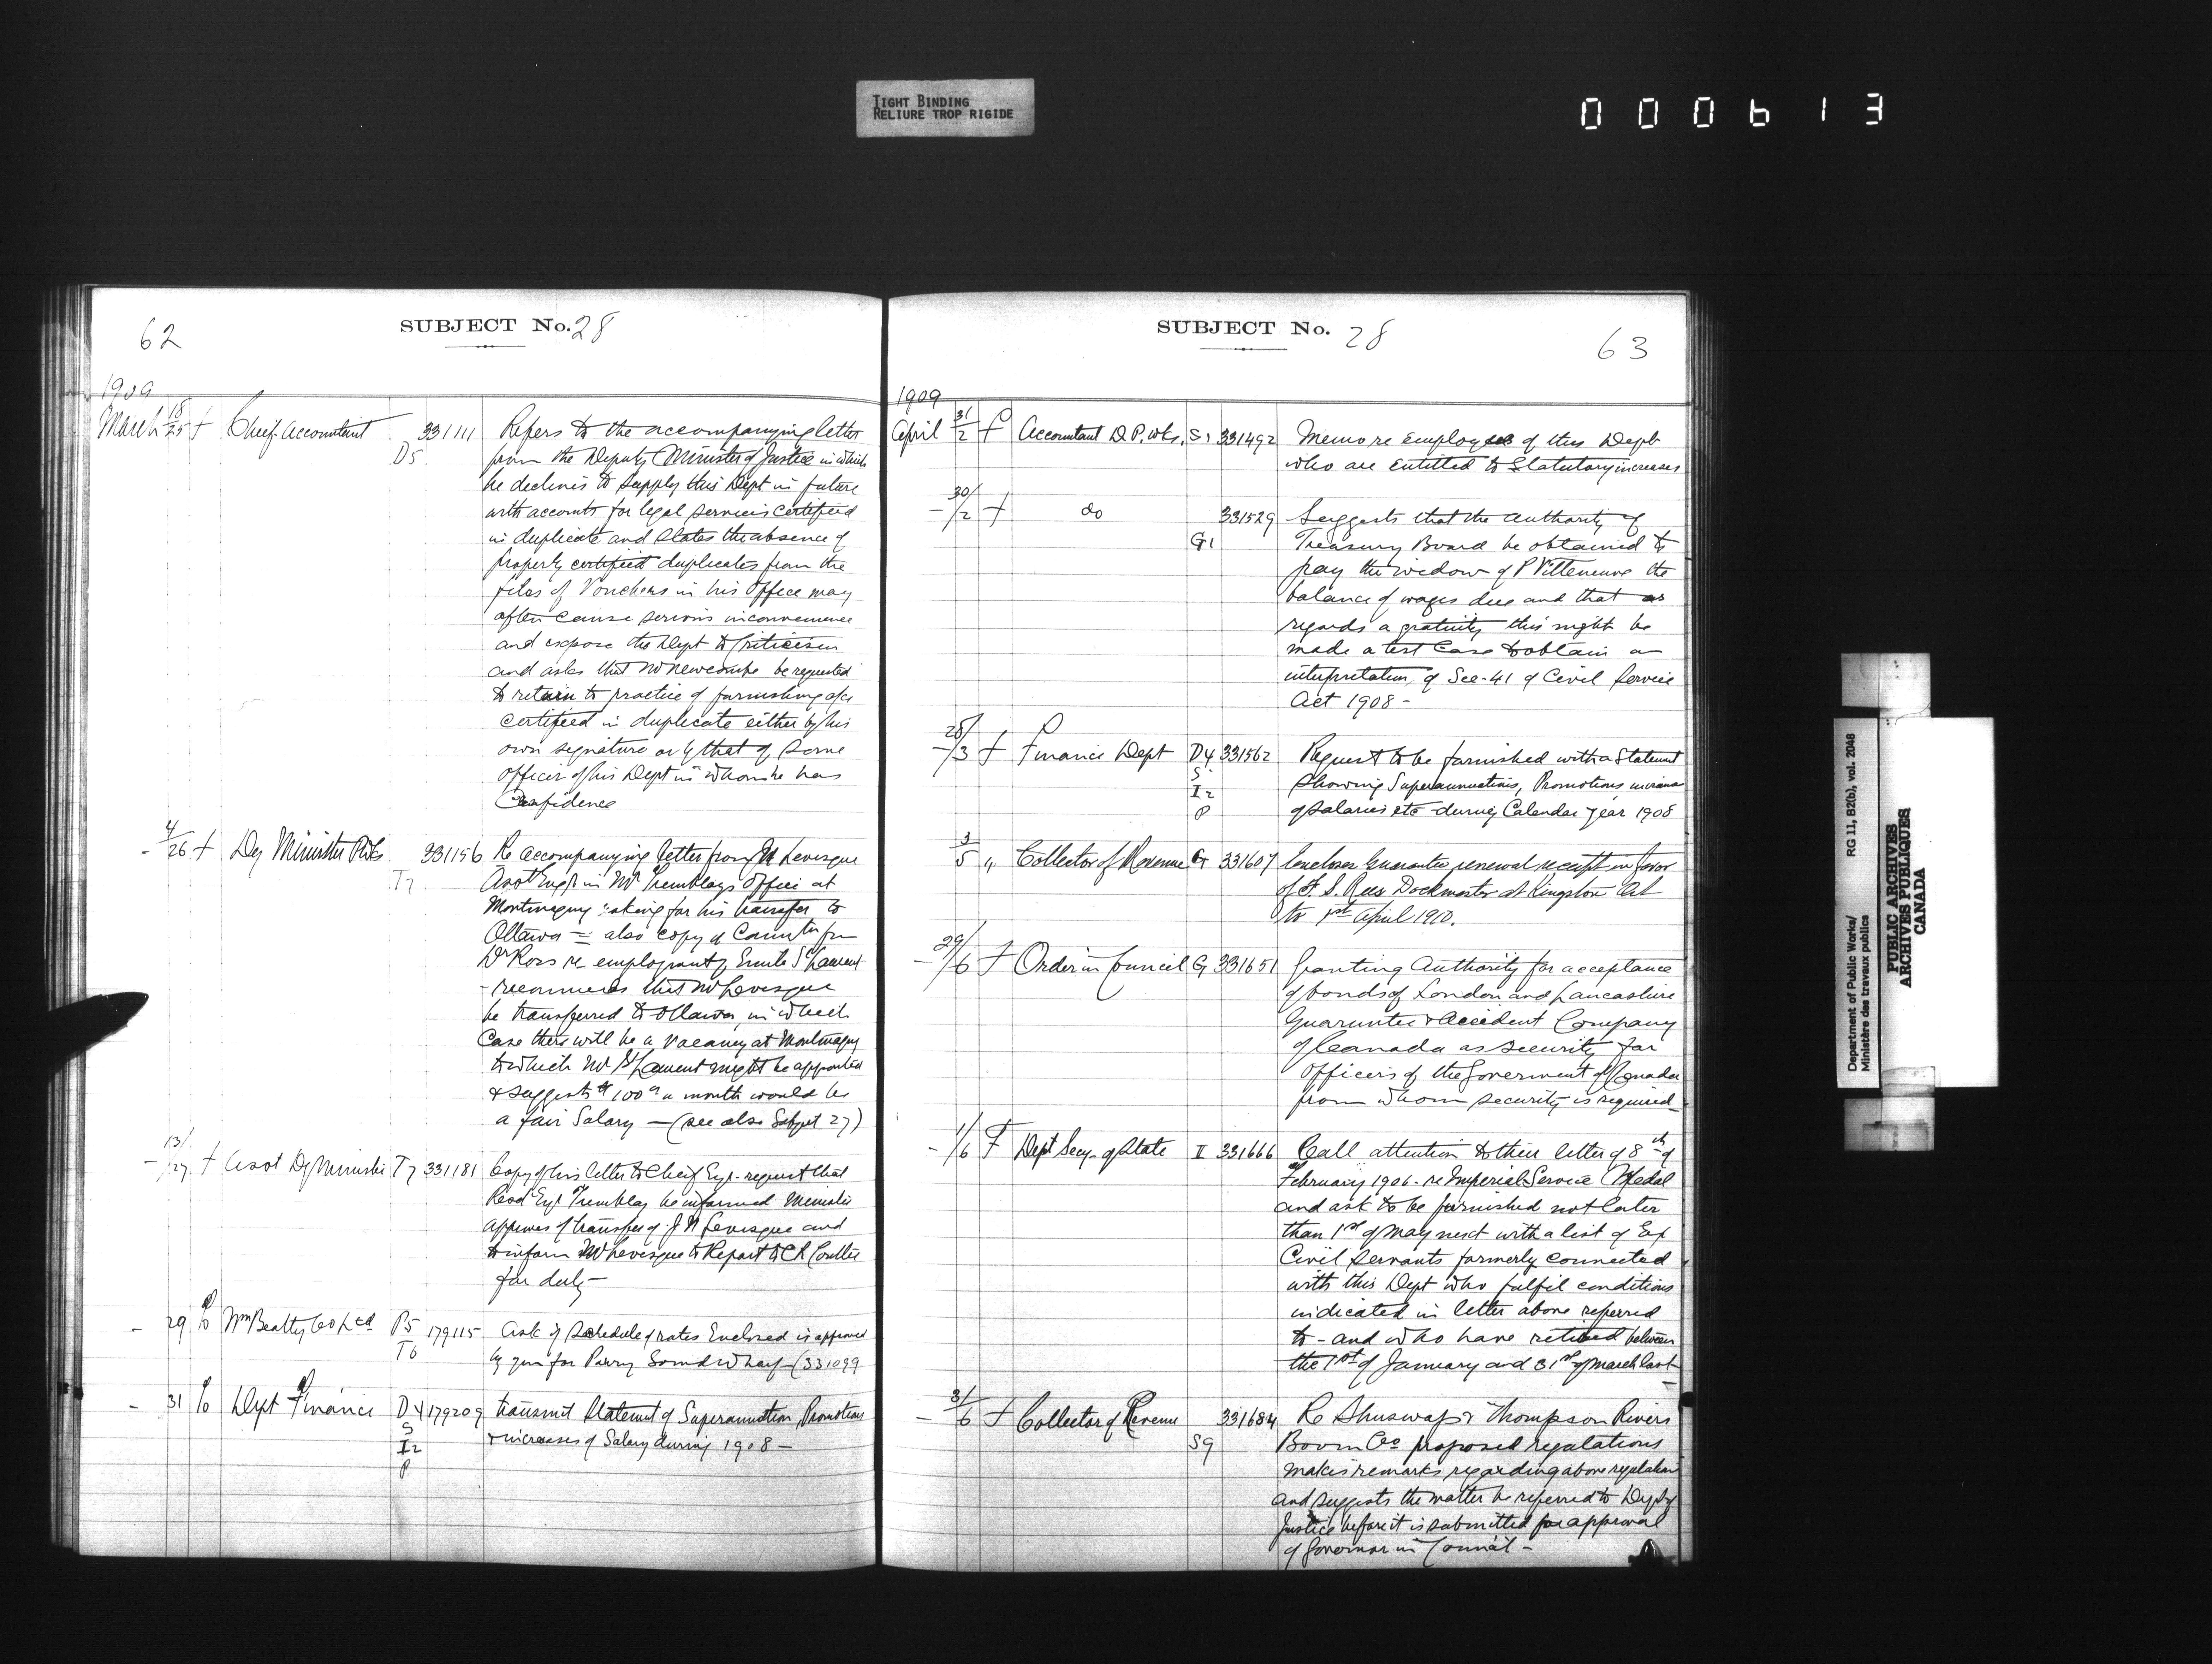 TIGHT BINDING
RELIURE TROP RIGIDE
000613
62
SUBJECT No. 28
1909
March 18/25 + Chief Accountant D5 331111 Refers to the accompanying letter
from the Deputy Minister of Justice in which
he declines to supply this Dept in future
with accounts for legal services certified
in duplicate and states the absence of
properly certified duplicates from the
files of Vouchers in his Office may
often cause serious inconvenience
and expose the Dept to Criticism
and asks that Mr Newcombe be requested
to return to practice of furnishing a/cs
certified in duplicate either by his
own signature or by that of some
officer of his Dept in whom he has
Confidence
- 4/26 + Dy Minister T7 331156 Re accompanying letter from Levesque
Asst Engr in Mr Tremblays Office at
Montmagny asking for his transfer to
Ottawa - also copy of
Dr Ross re employment of Emile St Laurent
- recommends that Mr Levesque
be transferred to Ottawa, in which
Case there will be a vacancy at Montmagny
to which Mr St Laurent might be appointed
& suggests $100 a month would be
a fair Salary - (see also Subject 27)
- 13/27 + Asst Dy Minister T7 331181 Copy of his letter to Chief Engr. request that
Resdt Engr Tremblay be informed Minister
approves of transfer of J N Levesque and
to inform Mr Levesque to Report to C R Coutlee
for duty -
- 29 Wm Beatty Co Ltd P5 T6 179115 Ask if schedule of rates Enclosed is approved
by you for Parry Sound Wharf - (331099
- 31 Dept Finance D4 S I2 P 179209 transmit Statement of Superannuation, Promotions
& increases of Salary during 1908 -
SUBJECT No. 28
63
1909
April 31/2 + Accountant D. P. Wks. S1 331492 Memo re employees of this Dept
who are entitled to Statutory increases
- 30/2 + do G1 331529 Suggests that the authority of
Treasury Board be obtained to
pay the widow of P Villeneuve the
balance of wages due and that as
regards a gratuity this might be
made a test Case to obtain an
interpretation of Sec-41 of Civil Service
Act 1908 -
- 28/3 + Finance Dept D4 S I2 P 331562 Request to be furnished with a Statement
showing Superannuations, Promotions increase
of salaries etc during Calendar year 1908
3/5 " Collector of Revenue G 331607 Encloses Guarantee renewal receipt in favor
of F. S. Rees Dockmaster at Kingston
to 1st April 1910.
- 29/6 + Order in Council G 331651 Granting Authority for acceptance
of bonds of London and Lancashire
Guarantee & Accident Company
of Canada as security for
Officers of the Government of Canada
from whom security is required -
- 1/6 + Dept Secy. of State I 331666 Call attention to their letter of 8th of
February 1906 - re Imperial Service Medal
and ask to be furnished not later
than 1st of May next with a list of Ex
Civil Servants formerly connected
with this Dept who fulfil conditions
indicated in letter above referred
to - and who have retired between
the 1st of January and 31st of March last -
- 31/6 + Collector of Revenue S9 331684 Re Shuswap & Thompson Rivers
Boom Co proposed regulations
makes remarks regarding above regulations
and suggests the matter be referred to Dept of
Justice before it is submitted for approval
of Governor in Council -
Department of Public Works/
Ministère des travaux publics
RG 11, B2(b), vol. 2048
PUBLIC ARCHIVES
ARCHIVES PUBLIQUES
CANADA